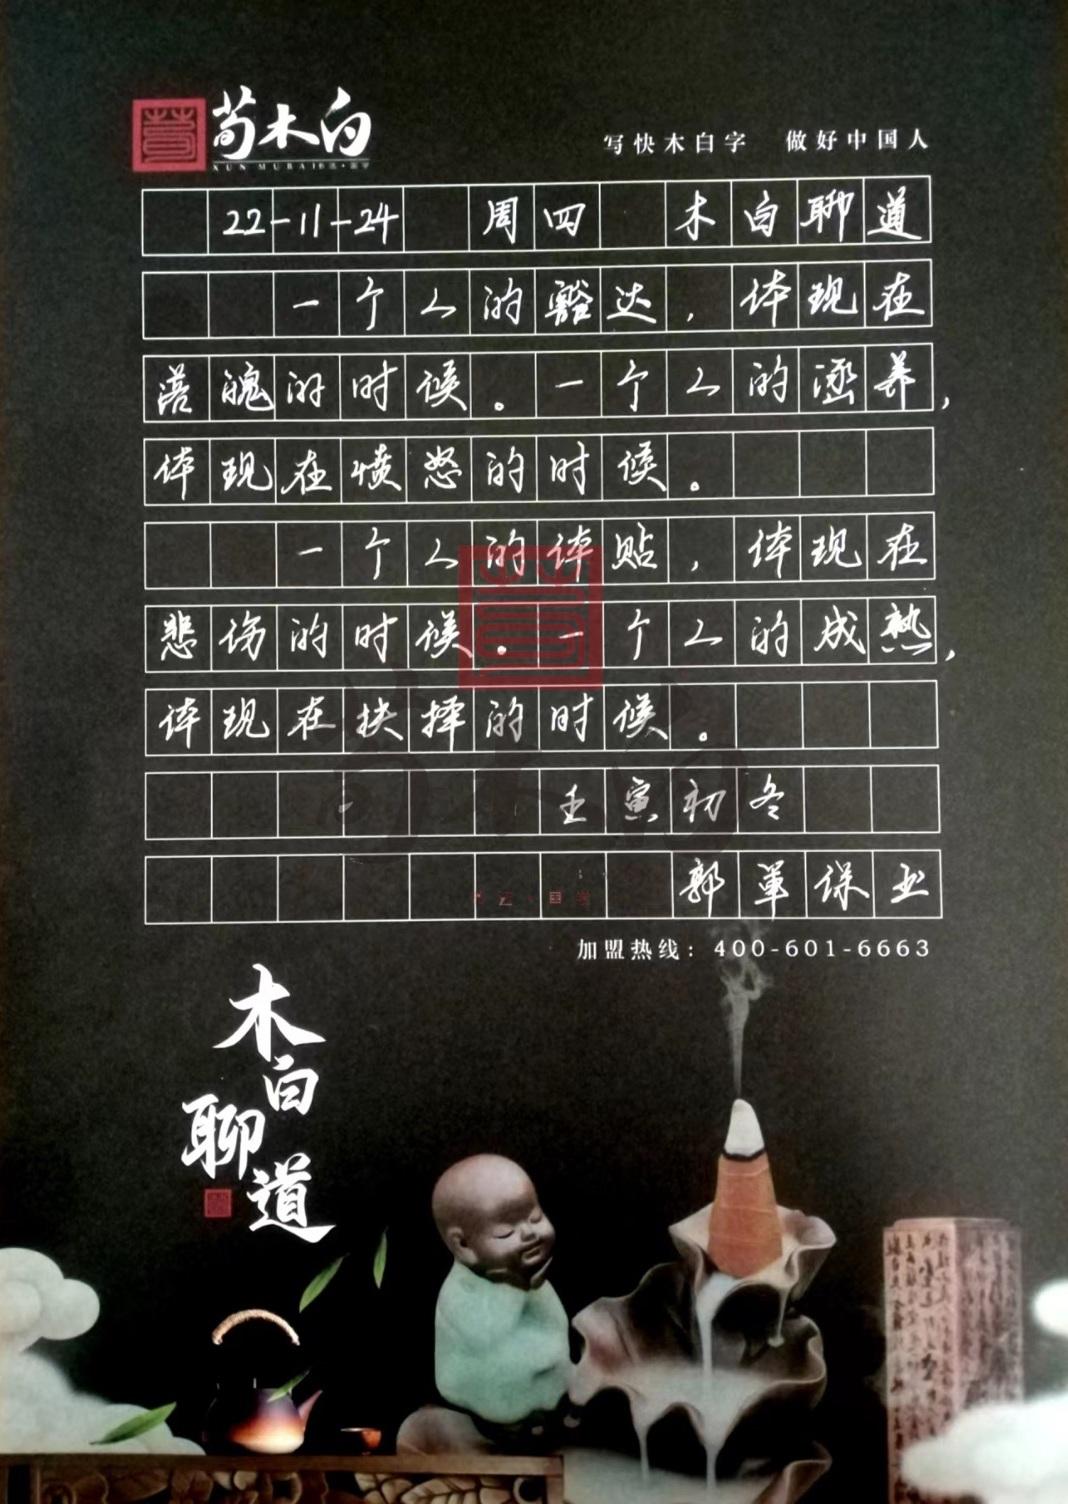 荀木白
XUN MUBAI
写快木白字 做好中国人
22-11-24 周四 木白聊道
一个人的豁达,体现在
落魄的时候。一个人的涵养,
体现在愤怒的时候。
一个人的体贴,体现在
悲伤的时候。一个人的成熟,
体现在抉择的时候。
壬寅初冬
郭军练书
加盟热线:400-601-6663
木白聊道